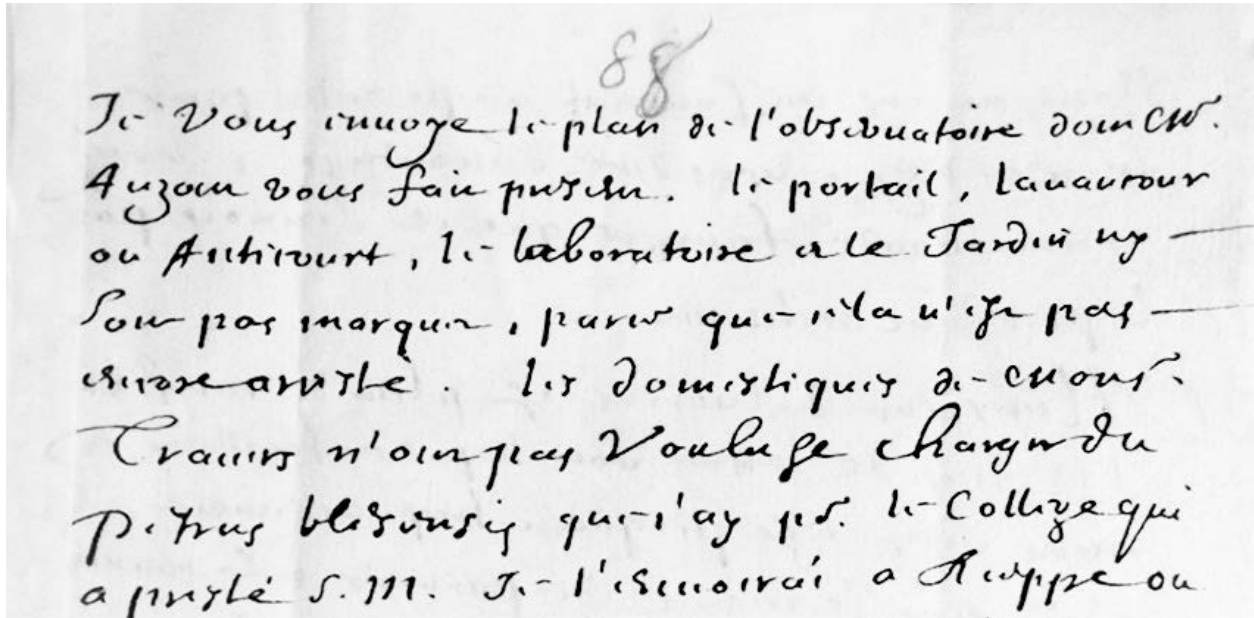 88
Je Vous enuoye le plan de l'obseruatoire dont Mr.
Auzout vous fait present. le portail, l'auancour
ou Anticourt, le laboratoire et le Jardin ny
sont pas marquez, parce que cela n'est pas
encore arresté. les domestiques de Mons.
Trauers n'ont pas Voulu se charger du
petrus blesensis que j'ay pr. le College qui
a presté S. M. Je l'enuoirai a Dieppe ou